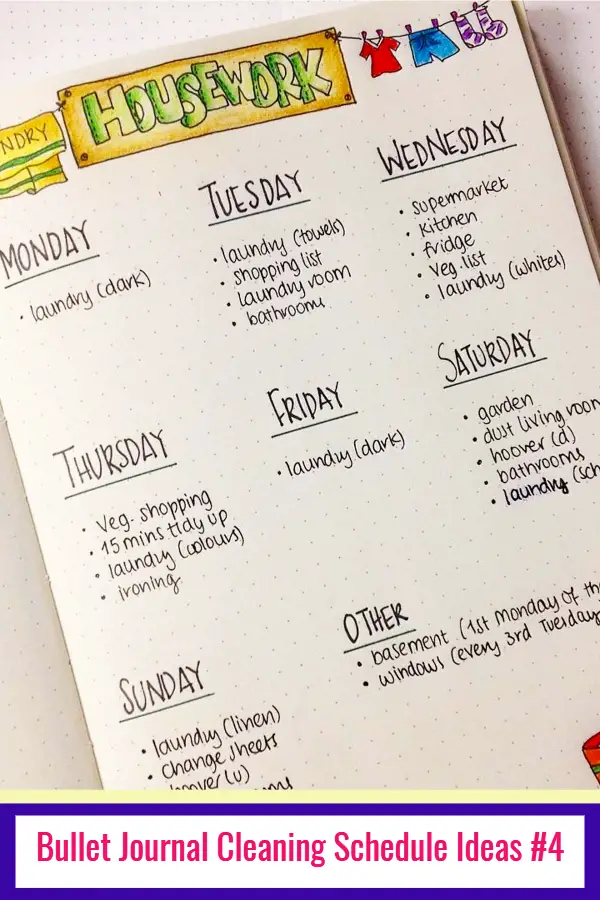 HOUSEWORK
NDRY
MONDAY
• laundry (dark)
TUESDAY
• laundry (towels)
• shopping list
• laundry room
• bathrooms
WEDNESDAY
• supermarket
• kitchen
• fridge
• veg. list
• laundry (whites)
THURSDAY
• veg. shopping
• 15 mins tidy up
• laundry (colours)
• ironing
FRIDAY
• laundry (dark)
SATURDAY
• garden
• dust living room
• hoover (d)
• bathrooms
• laundry (sch
SUNDAY
• laundry (linen)
• change sheets
hoover (u)
OTHER
• basement (1st Monday of th
• windows (every 3rd Tuesday
Bullet Journal Cleaning Schedule Ideas #4